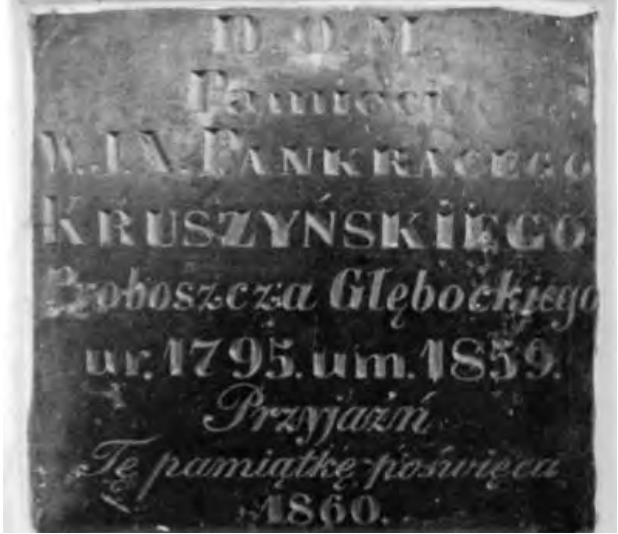 D.O.M.
Pamięci
W.J.X. PANKRACEGO
KRUSZYŃSKIEGO
Proboszcza Głębockiego
ur. 1795. um. 1859.
Przyjaźń
Tę pamiątkę poświęca
1860.